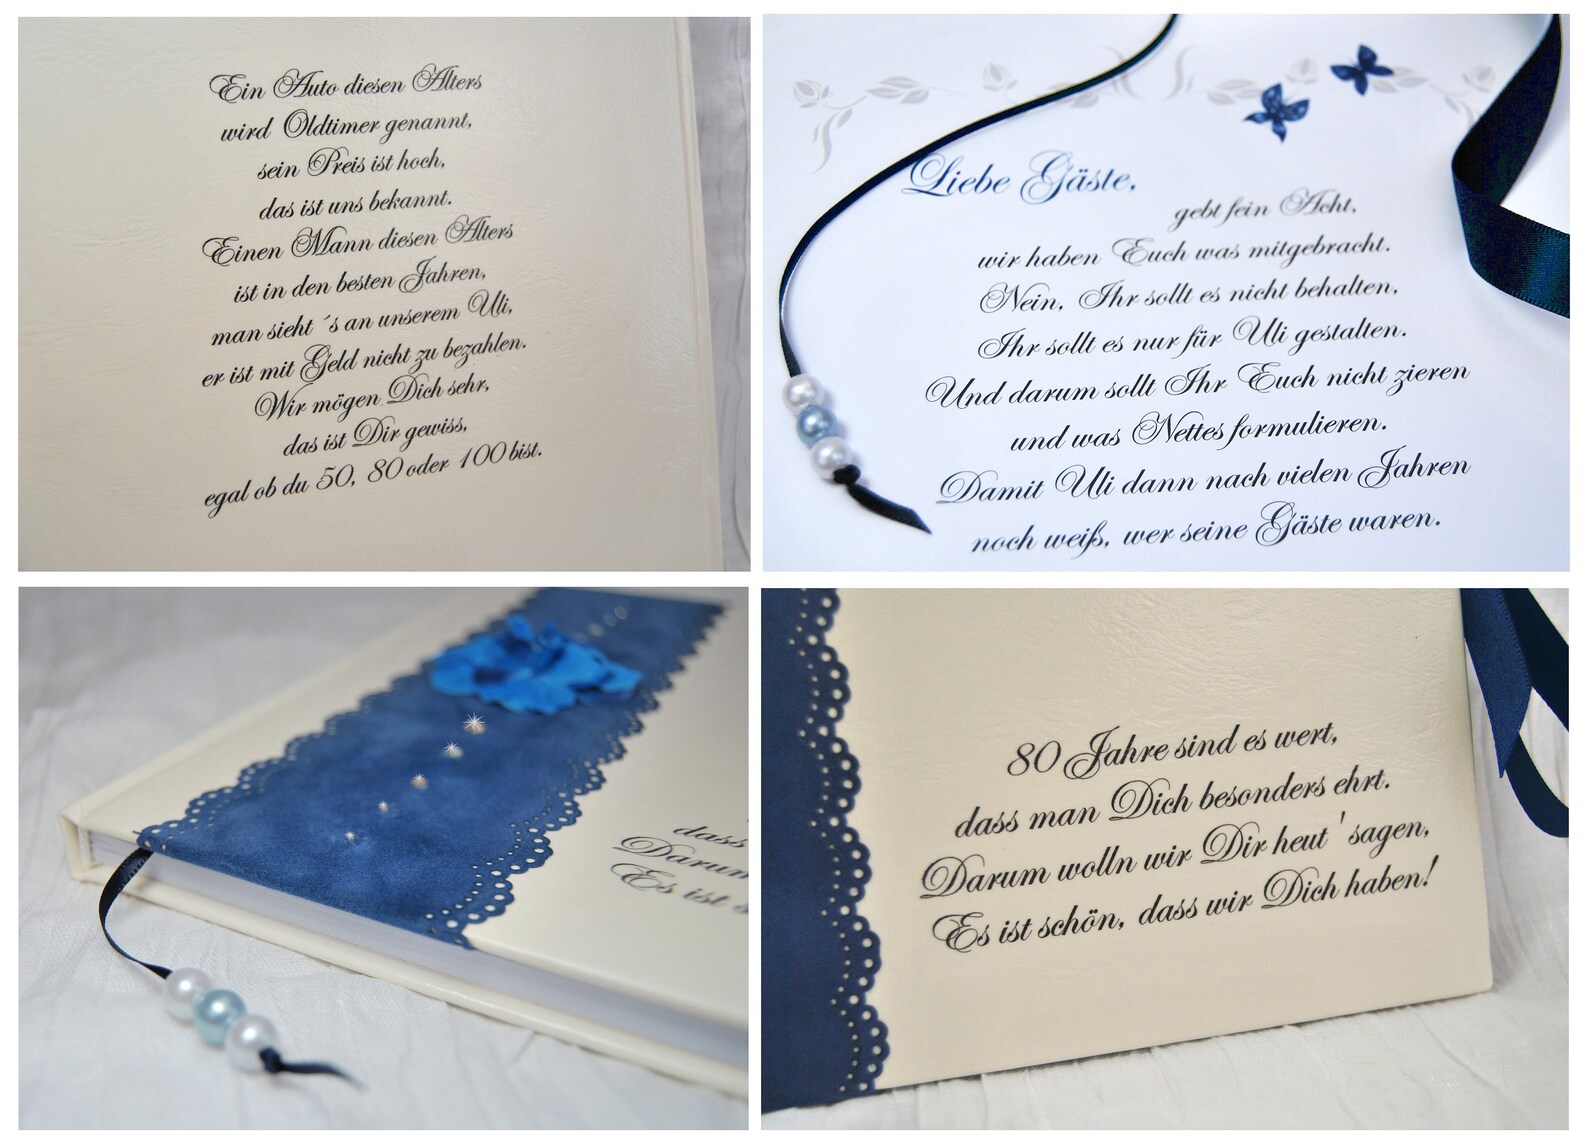 Ein Auto diesen Alters
wird Oldtimer genannt,
sein Preis ist hoch,
das ist uns bekannt.
Einen Mann diesen Alters
ist in den besten Jahren,
man sieht ´s an unserem Uli,
er ist mit Geld nicht zu bezahlen.
Wir mögen Dich sehr,
das ist Dir gewiss,
egal ob du 50, 80 oder 100 bist.
Liebe Gäste,
gebt fein Acht,
wir haben Euch was mitgebracht.
Nein, Ihr sollt es nicht behalten,
Ihr sollt es nur für Uli gestalten.
Und darum sollt Ihr Euch nicht zieren
und was Nettes formulieren.
Damit Uli dann nach vielen Jahren
noch weiß, wer seine Gäste waren.
dass
Darum
Es ist s
80 Jahre sind es wert,
dass man Dich besonders ehrt.
Darum wolln wir Dir heut ' sagen,
Es ist schön, dass wir Dich haben!